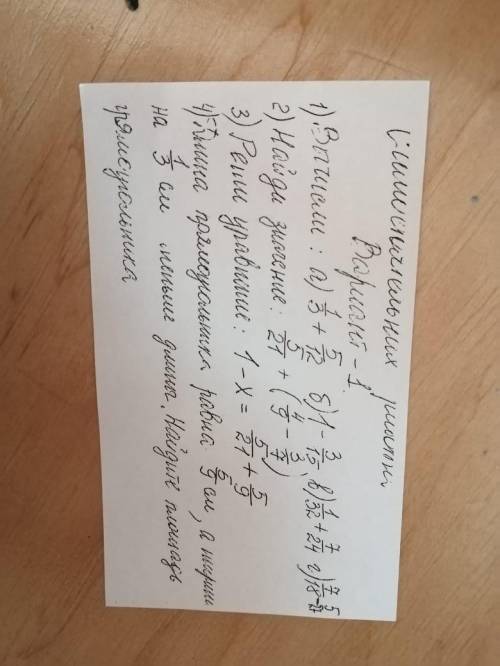 Вариант - 1
1) Вычисли: а) 1/3 + 5/12 б) 1 - 3/15, в) 1/32 + 7/24 г) 7/18 - 5/27
2) Найди значение: 5/21 + (4/9 - 3/7)
3) Реши уравнение: 1 - x = 5/21 + 5/9
4) Длина прямоугольника равна 5/6 см, а ширина
на 1/3 см меньше длины. Найдите площадь
прямоугольника